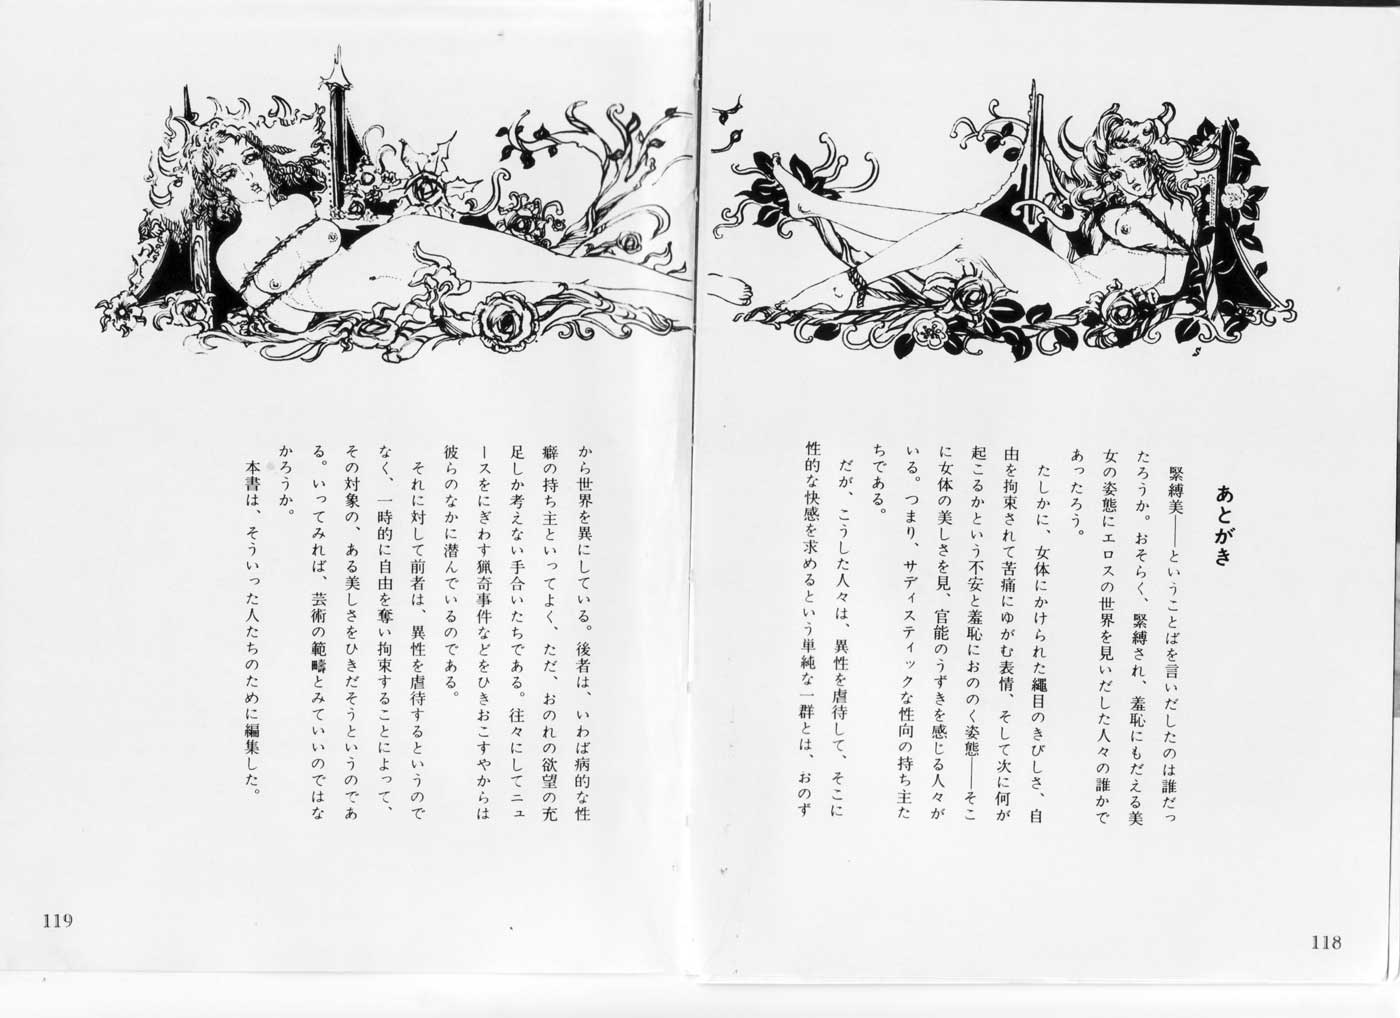 あとがき
緊縛美――ということばを言いだしたのは誰だっ
たろうか。おそらく、緊縛され、羞恥にもだえる美
女の姿態にエロスの世界を見いだした人々の誰かで
あったろう。
たしかに、女体にかけられた縄目のきびしさ、自
由を拘束されて苦痛にゆがむ表情、そして次に何が
起こるかという不安と羞恥におののく姿態――そこ
に女体の美しさを見、官能のうずきを感じる人々が
いる。つまり、サディスティックな性向の持ち主た
ちである。
だが、こうした人々は、異性を虐待して、そこに
性的な快感を求めるという単純な一群とは、おのず
118
から世界を異にしている。後者は、いわば病的な性
癖の持ち主といってよく、ただ、おのれの欲望の充
足しか考えない手合いたちである。往々にしてニュ
ースをにぎわす猟奇事件などをひきおこすやからは
彼らのなかに潜んでいるのである。
それに対して前者は、異性を虐待するというので
なく、一時的に自由を奪い拘束することによって、
その対象の、ある美しさをひきだそうというのであ
る。いってみれば、芸術の範疇とみていいのではな
かろうか。
本書は、そういった人たちのために編集した。
119